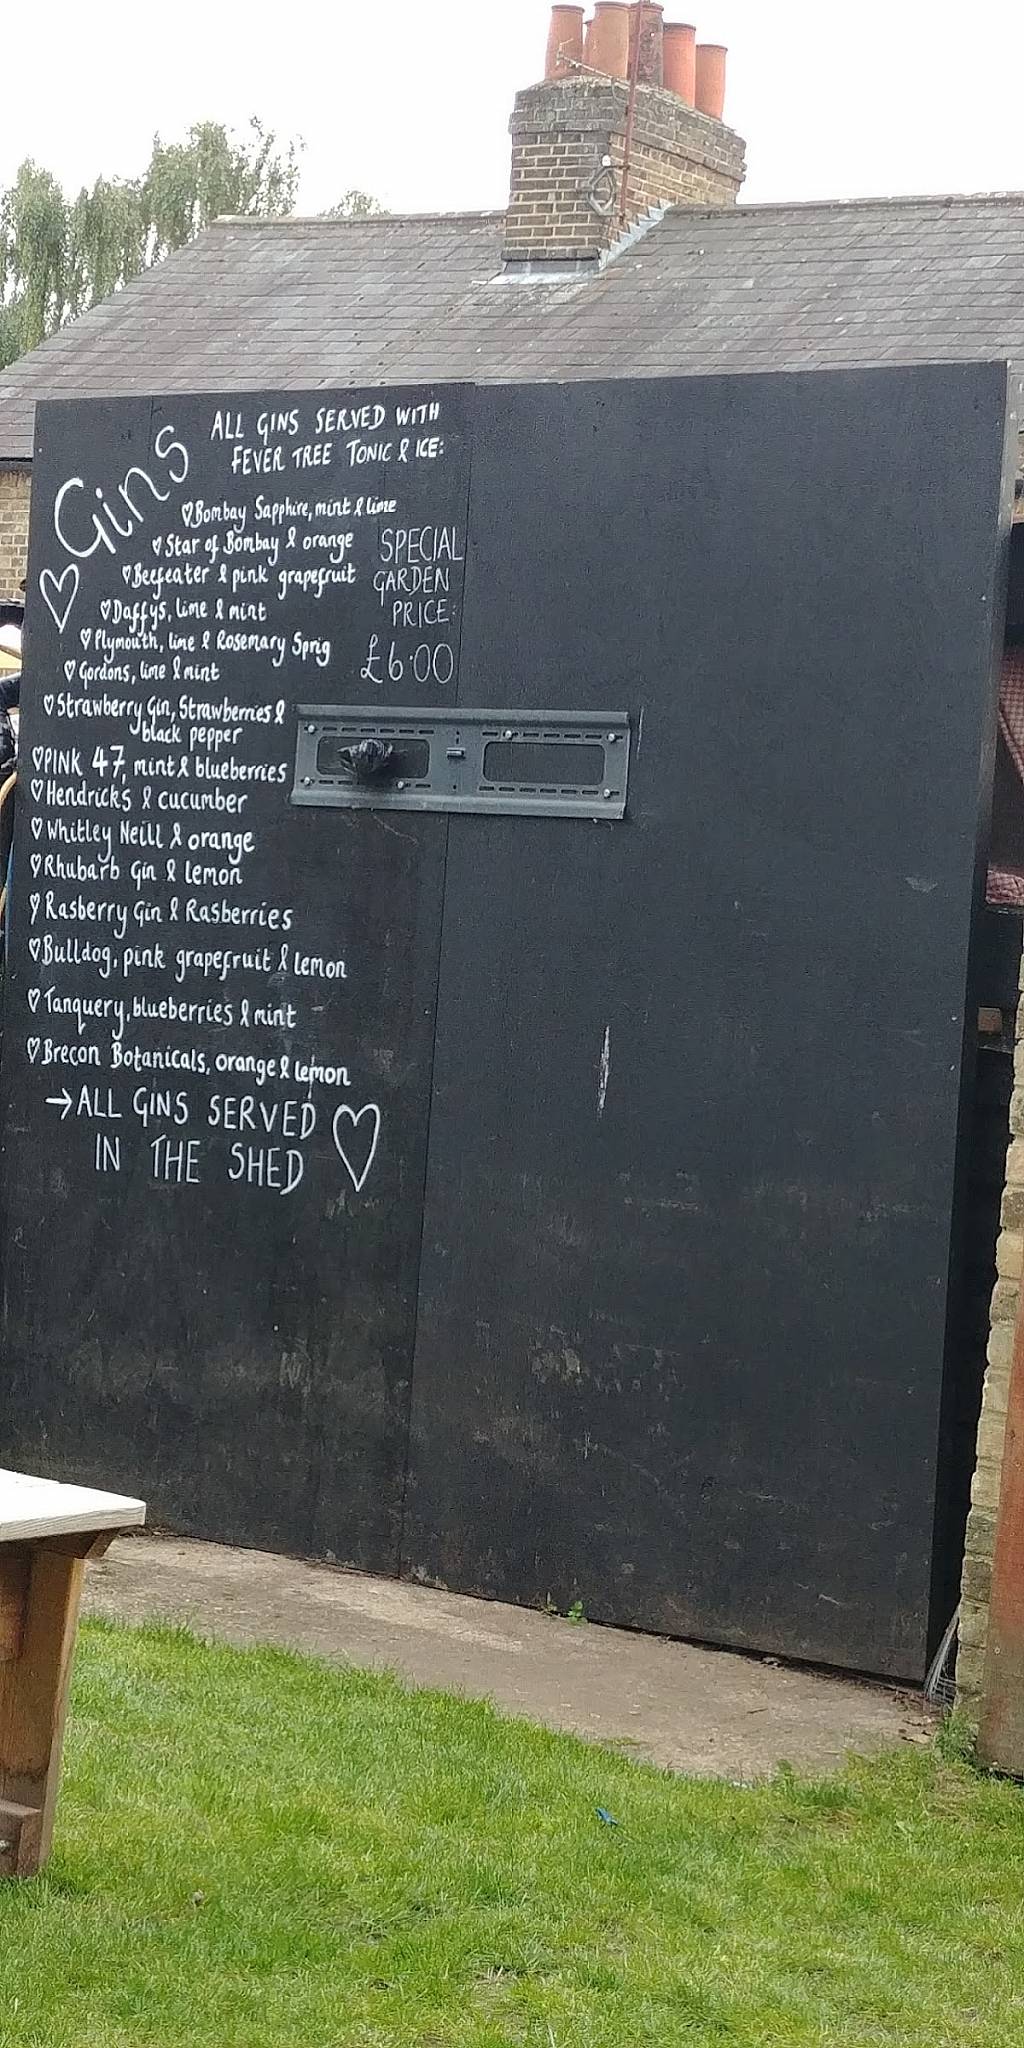 Gins
ALL GINS SERVED WITH
FEVER TREE TONIC & ICE:
♡Bombay Sapphire, mint & lime
♡Star of Bombay & orange
♡Beefeater & pink grapefruit
♡Daffys, lime & mint
♡Plymouth, lime & Rosemary Sprig
♡Gordons, lime & mint
♡Strawberry Gin, Strawberries &
black pepper
♡PINK 47, mint & blueberries
♡Hendricks & cucumber
♡Whitley Neill & orange
♡Rhubarb Gin & lemon
♡Rasberry Gin & Rasberries
♡Bulldog, pink grapefruit & lemon
♡Tanquery, blueberries & mint
♡Brecon Botanicals, orange & lemon
→ALL GINS SERVED
IN THE SHED
SPECIAL
GARDEN
PRICE:
£6.00